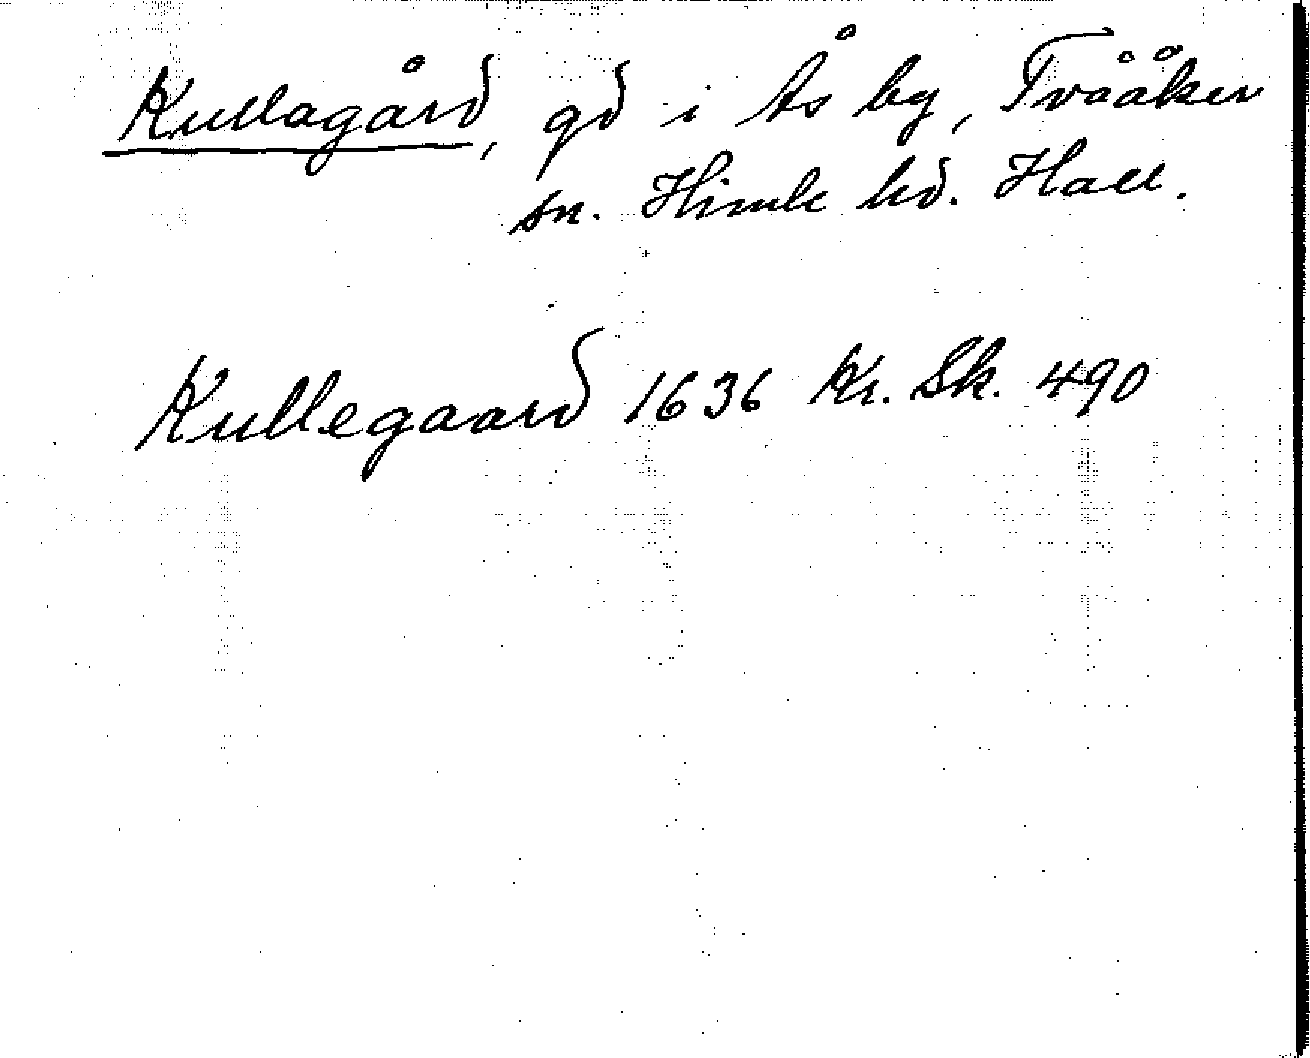 Kullagård, gd i Ås by, Tvååker
sn. Himle hd. Hall.
Kullegaard 1636 Kr. Sk. 490